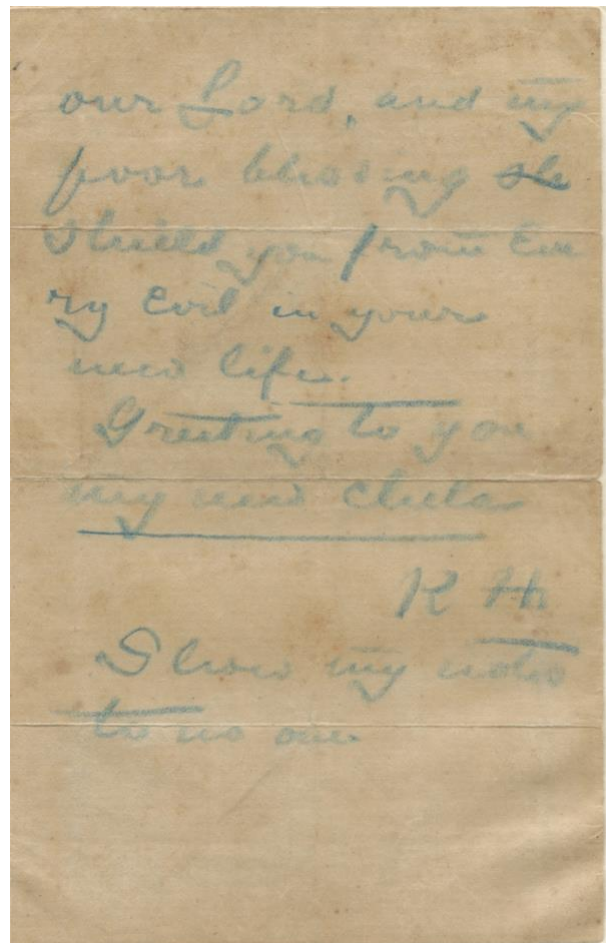 our Lord, and my
poor blessing sh
shield you from Eve
ry evil in your
new life.
Greeting to you
my new chela
K H
Show my notes
to no one